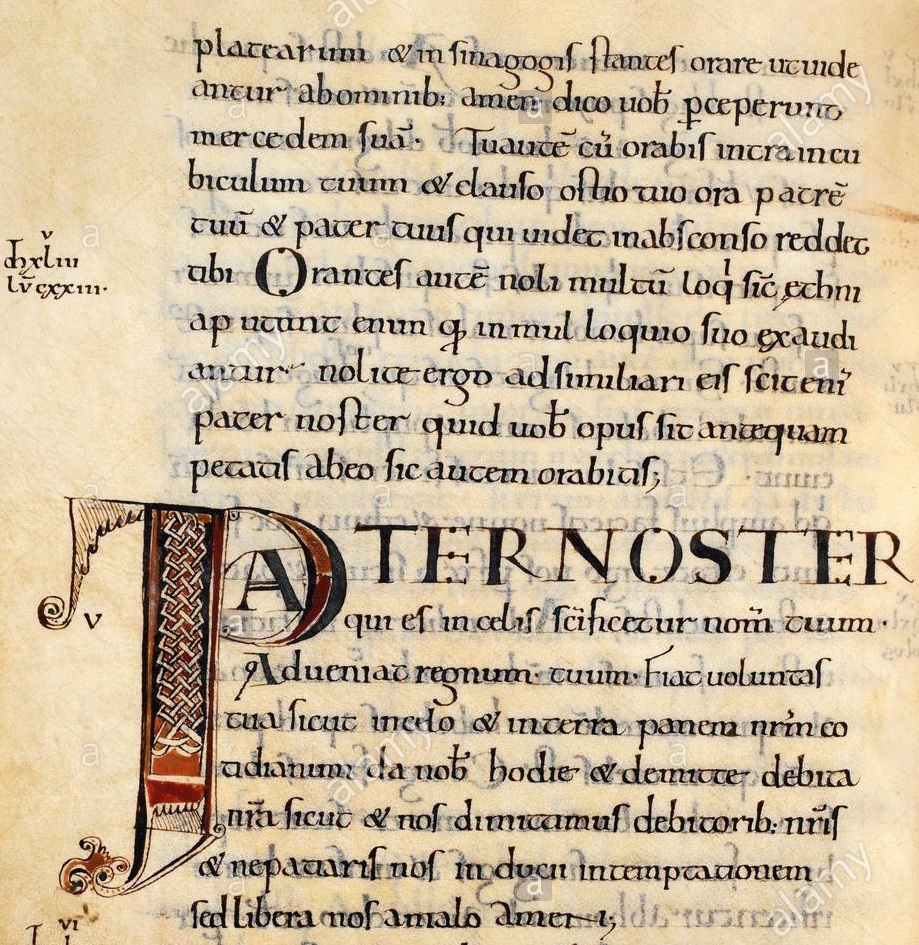 platearum & in sinagogis stantes orare ut uide
antur ab ominib: amen dico uob̄ ꝑceperunt
mercedem suā. Tu autē cū orabis intra in cu
biculum tuum & clauso ostio tuo ora patrē
tuū & pater tuus qui uidet in absconso reddet
tibi Orantes autē noli multū loq sic̄ ęthni
aputant enim in mul loquio suo ęxaudi
antur nolite ergo adsimiliari eis scit eni
pater noster quid uob̄ opus sit antequam
petatis ab eo sic autem orabitis;
PATER NOSTER
qui es in celis sc̄ificetur nom̄ tuum.
Adueniat regnum tuum. Fiat uoluntas
tua sicut in celo & in terra panem nr̄m co
tidianum da nob̄ hodie & demitte debita
nr̄a sicut & nos dimittamus debitorib: nr̄is
& ne patiaris nos induci in temptationem
sed libera nos a malo amen
xliii
lv̄ cxxiii.
v
vi
alamy